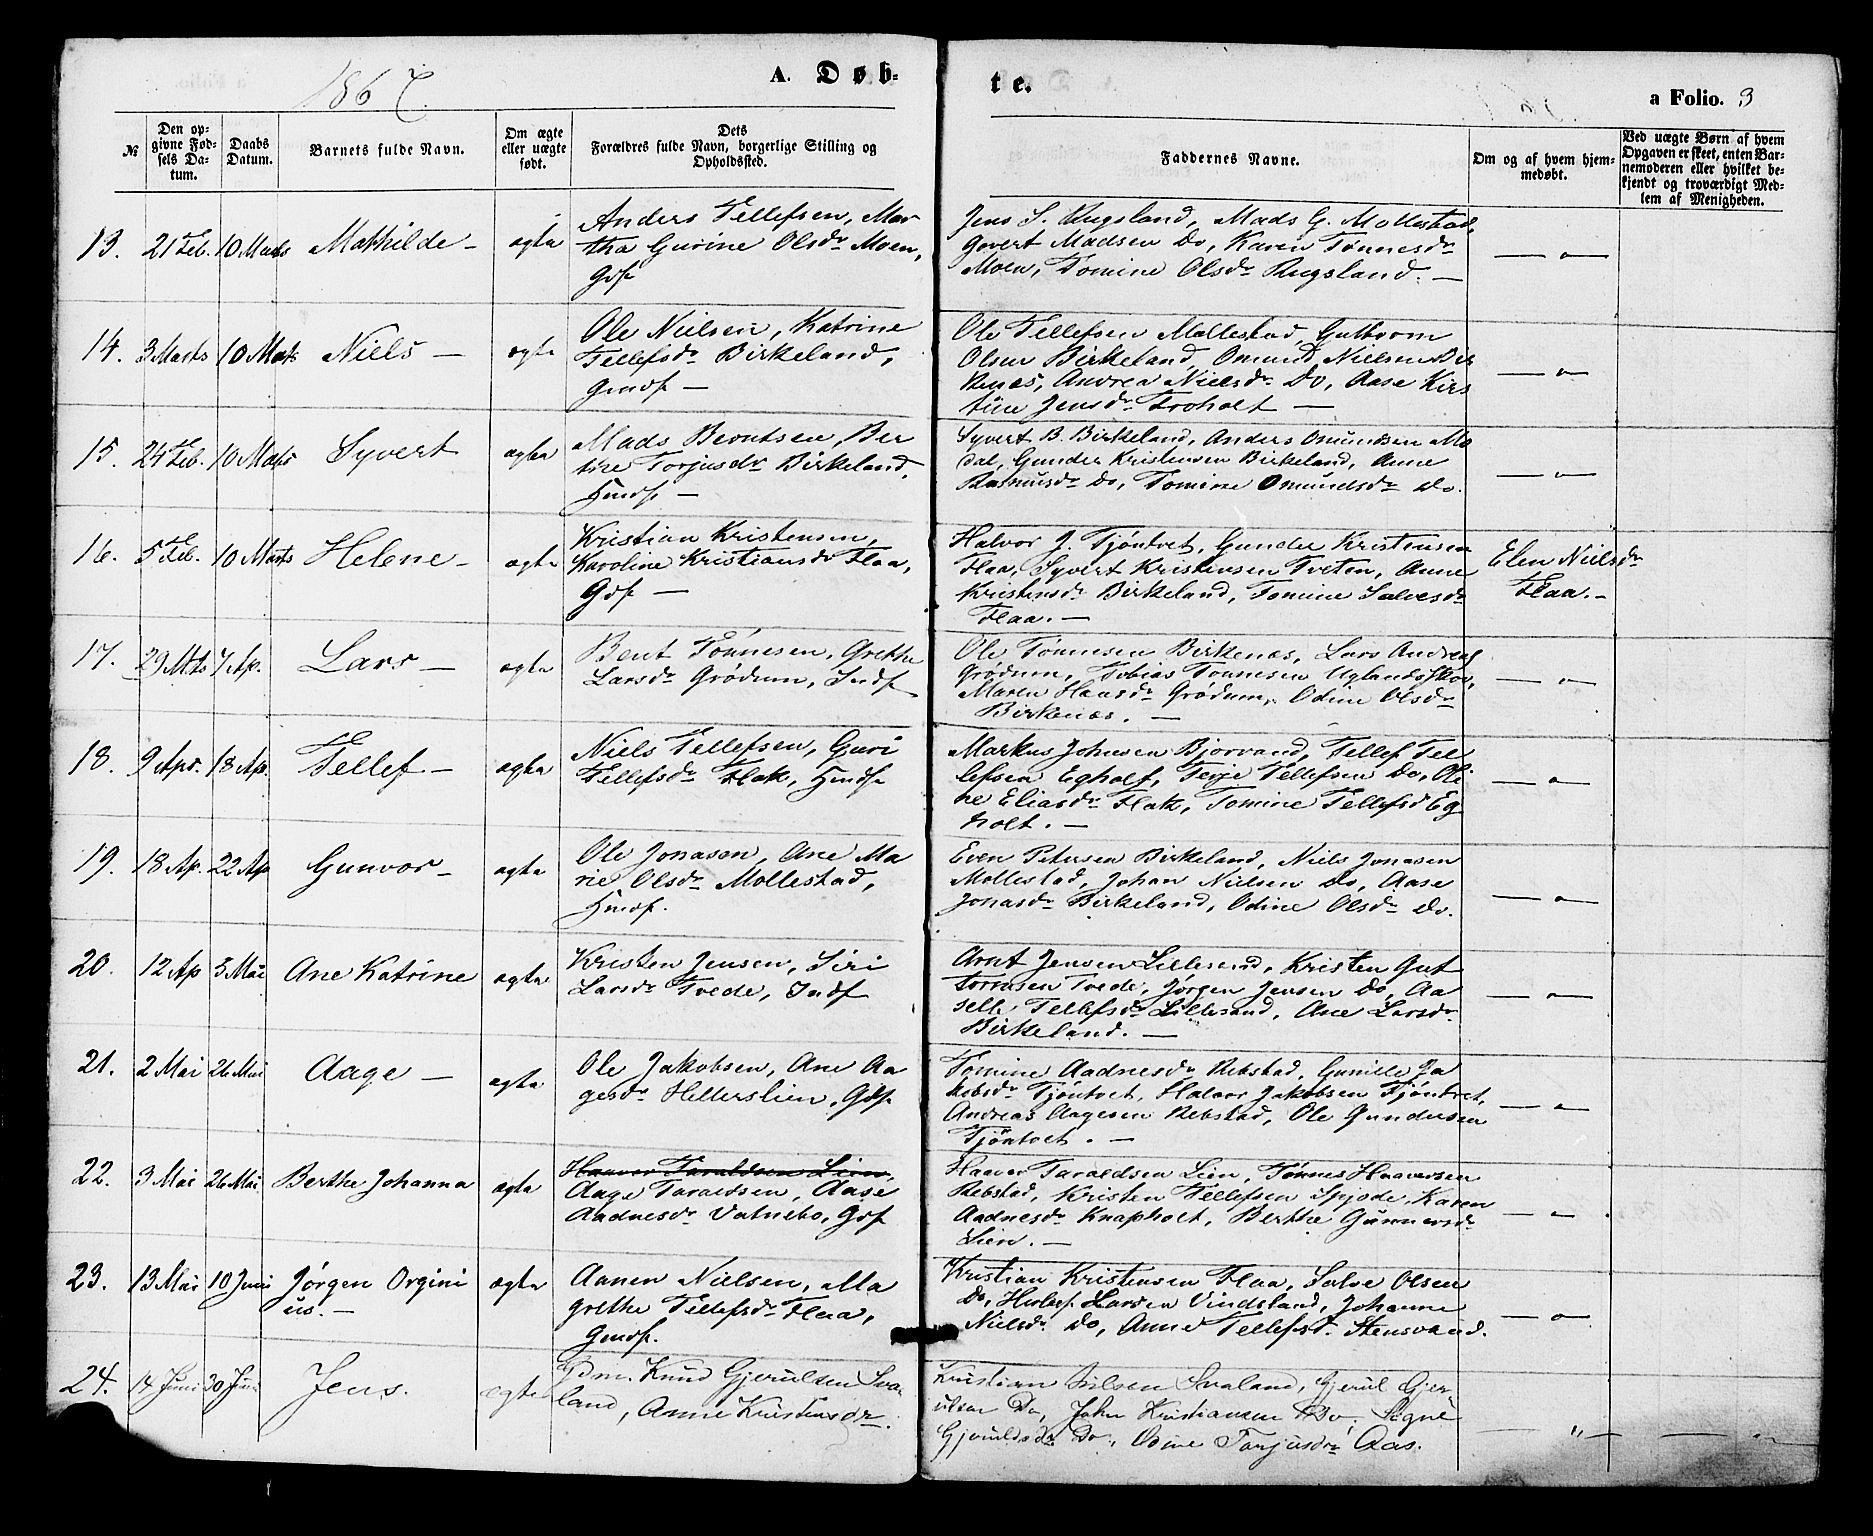 1867.
A. Døb-
te.
a Folio. 3
№
Den op-
givne Fød-
sels Da-
tum.
Daabs
Datum.
Barnets fulde Navn.
Om ægte
eller uægte
født.
Dets
Forældres fulde Navn, borgerlige Stilling og
Opholdssted.
Faddernes Navne.
Om og af hvem hjem-
medøbt.
Ved uægte Børn af hvem
Opgaven er skeet, enten Bar-
nemoderen eller hvilket be-
kjendt og troværdigt Med-
lem af Menigheden.
13. 21 Feb. 10 Marts Mathilde - ægte
Anders Tellefsen, Mar
tha Gurine Olsdr Moen,
Gdf
Jens S. Rugsland, Mads G. Mollestad,
Govert Madsen Do, Karen Tønnesdr
Moen, Tomine Olsdr Rugsland. -
— " —
14. 3 Marts 10 Marts Niels - ægte
Ole Nielsen, Katrine
Tellefsdr Birkeland,
Gmdf -
Ole Tellefsen Mollestad, Guttorm
Olsen Birkeland, Omund Nielsen Bir
kenes, Andrea Nielsdr Do, Aase Kirs
tine Jensdr Troholt -
— " —
15. 24 Feb. 10 Marts Syvert ægte
Mads Berntsen, Ber
the Torjusdr Birkeland,
Hmdf -
Syvert B. Birkeland, Anders Omundsen Mo
dal, Gunder Kristensen Birkeland, Anne
Rasmusdr Do, Tomine Omundsdr Do.
— " —
16. 5 Feb. 10 Marts Helene - ægte
Kristian Kristensen,
Karoline Kristiansdr Flaa,
Gdf -
Halvor J. Tjøntvet, Gunder Kristensen
Flaa, Syvert Kristensen Tveten, Anne
Kristensdr Birkeland, Tomine Salvesdr
Flaa. -
Elen Nielsdr
Flaa. -
17. 29 Mts 7 Ap. Lars - ægte
Bent Tønnesen, Grethe
Larsdr Grødum, Indf
Ole Tønnesen Birkenæs, Lars Andreas
Grødum, Tobias Tønnesen Uglandsskov,
Maren Hansdr Grødum, Odine Olsdr
Birkenæs. -
— " —
18. 9 Apr. 18 Ap. Tellef - ægte
Niels Tellefsen, Guri
Tellefsdr Flak, Hmdf
Markus Johnsen Bjorvand, Tellef Tel
lefsen Egholt, Terje Tellefsen Do, Oli
ne Eliasdr Flak, Tomine Tellefsd Eg
holt. -
— " —
19. 18 Ap. 22 Ap Gunvor - ægte
Ole Jonasen, Ane Ma
rie Olsdr Mollestad,
Hmdf.
Even Petersen Birkeland, Niels Jonasen
Mollestad, Johan Nielsen Do, Aase
Jonasdr Birkeland, Odine Olsdr Do.
— " —
20. 12 Ap 3 Mai Ane Katrine ægte
Kristen Jensen, Siri
Larsdr Tvede, Indf
Arnt Jensen Lillesand, Kristen Gut
tormsen Tvede, Jørgen Jensen Do, Aa
selle Tellefsdr Lillesand, Ane Larsdr
Birkeland. -
— " —
21. 2 Mai 26 Mai Aage - ægte
Ole Jakobsen, Ane Aa
gesdr Hellerslien, Gdf.
Tomine Aadnesdr Rebstad, Gunille Ja
kobsdr Tjøntvet, Halvor Jakobsen Tjøntvet,
Andreas Aagesen Rebstad, Ole Gundersen
Tjøntvet. -
— " —
22. 3 Mai 26 Mai Berthe Johanna ægte
Haaver Taraldsen Lien,
Aage Taraldsen, Aase
Aadnesdr Vatnebo, Gdf
Haaver Taraldsen Lien, Tønnes Haaversen
Rebstad, Kristen Tellefsen Spjode, Karen
Aadnesdr Knapholt, Berthe Gunnarsdr
Lien. -
— " —
23. 13 Mai 10 Juni Jørgen Orgini
us. - ægte
Aanen Nielsen, Ma
grethe Tellefsdr Flaa,
Gmdf.
Kristian Kristensen Flaa, Salve Olsen
Do, Herlof Larsen Vindsland, Johanne
Nielsdr Do, Anne Tellefsdr Stensvand.
— " —
24. 14 Juni 30 Juni Jens. ægte
Gdm. Knud Gjerulsen Sva
land, Anne Kristensdr.
Kristian Nilsen Svaland, Gjerul Gjer-
ulsen Do, John Kristiansen Do. Signe
Gjeruldsdr Do, Odine Torjusdr Aas.
— " —